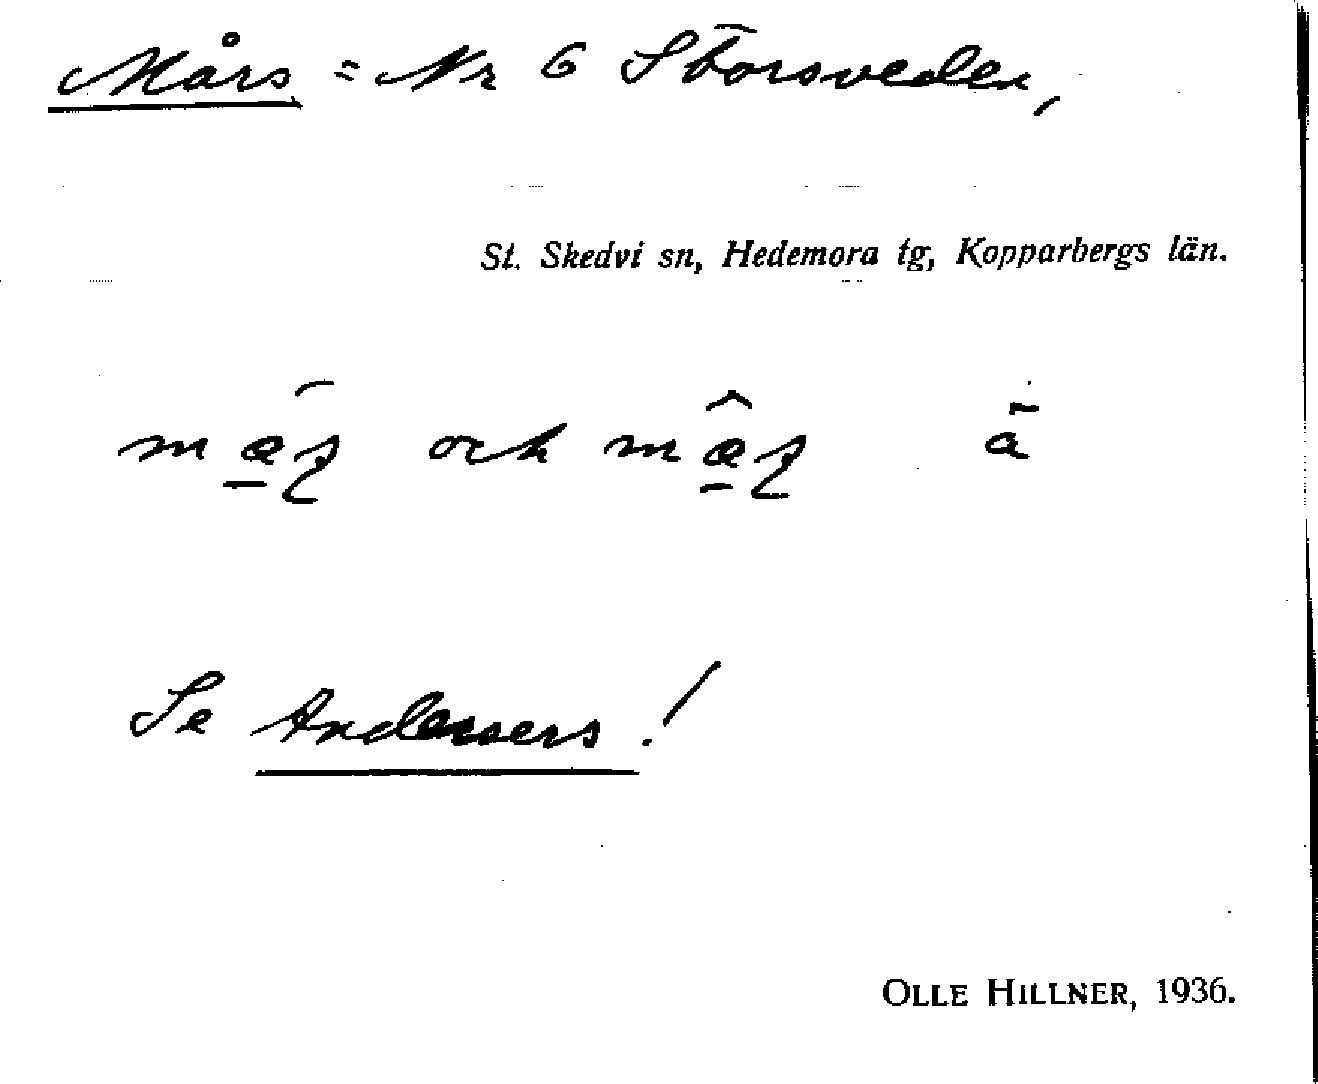 Mårs = Nr 6 Storsveden,
St. Skedvi sn, Hedemora tg, Kopparbergs län.
och
Se Anderssers!
OLLE HILLNER, 1936.